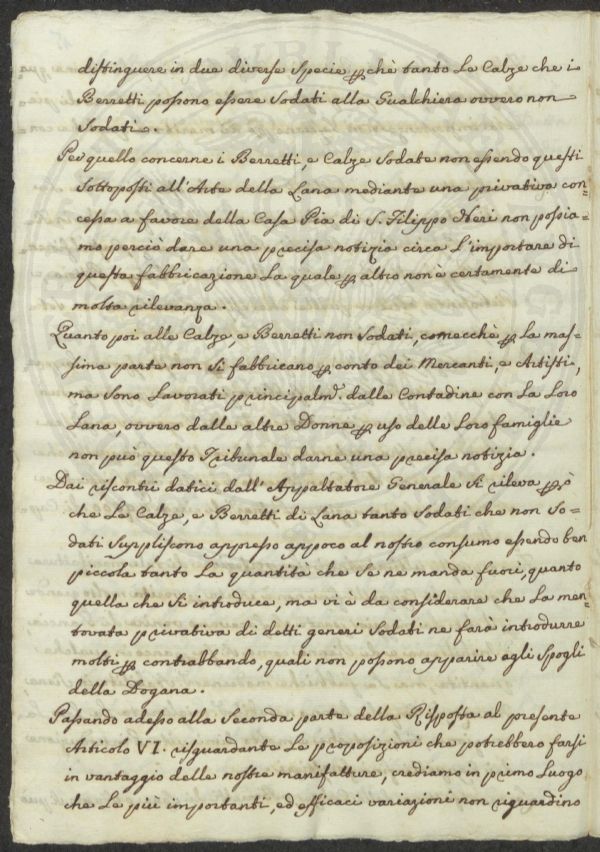 distinguere in due diverse specie pchè tanto Le Calze che i
Berretti possono essere Sodati alla Gualchiera ovvero non
Sodati.
Per quello concerne i Berretti, e Calze Sodate non essendo questi
Sottoposti all'Arte della Lana mediante una privativa con=
cessa a favore della Casa Pia di S. Filippo Neri non possia=
mo perciò dare una precisa notizia circa L'importare di
questa fabbricazione La quale p altro non è certamente di
molta rilevanza.
Quanto poi alle Calze, e Berretti non Sodati, comecchè p La mas=
sima parte non Si fabbricano p conto dei Mercanti, e Artisti,
ma Sono Lavorati principalmᵉ. dalle Contadine con La Loro
Lana, ovvero dalle altre Donne p uso delle Loro famiglie
non può questo Tribunale darne una precisa notizia.
Dai riscontri datici dall'Appaltatore Generale Si rileva pò
che Le Calze, e Berretti di Lana tanto Sodati che non So=
dati Suppliscono appresso appoco al nostro consumo essendo ben
piccola tanto La quantità che Se ne manda fuori, quanto
quella che Si introduce, ma vi è da considerare che La men=
tovata privativa di detti generi Sodati ne farà introdurre
molti p contrabbando, quali non possono apparire agli Spogli
della Dogana.
Passando adesso alla Seconda parte della Risposta al presente
Articolo VI. risguardante Le proposizioni che potrebbero farsi
in vantaggio delle nostre manifatture, crediamo in primo Luogo
che Le più importanti, ed efficaci variazioni non riguardino